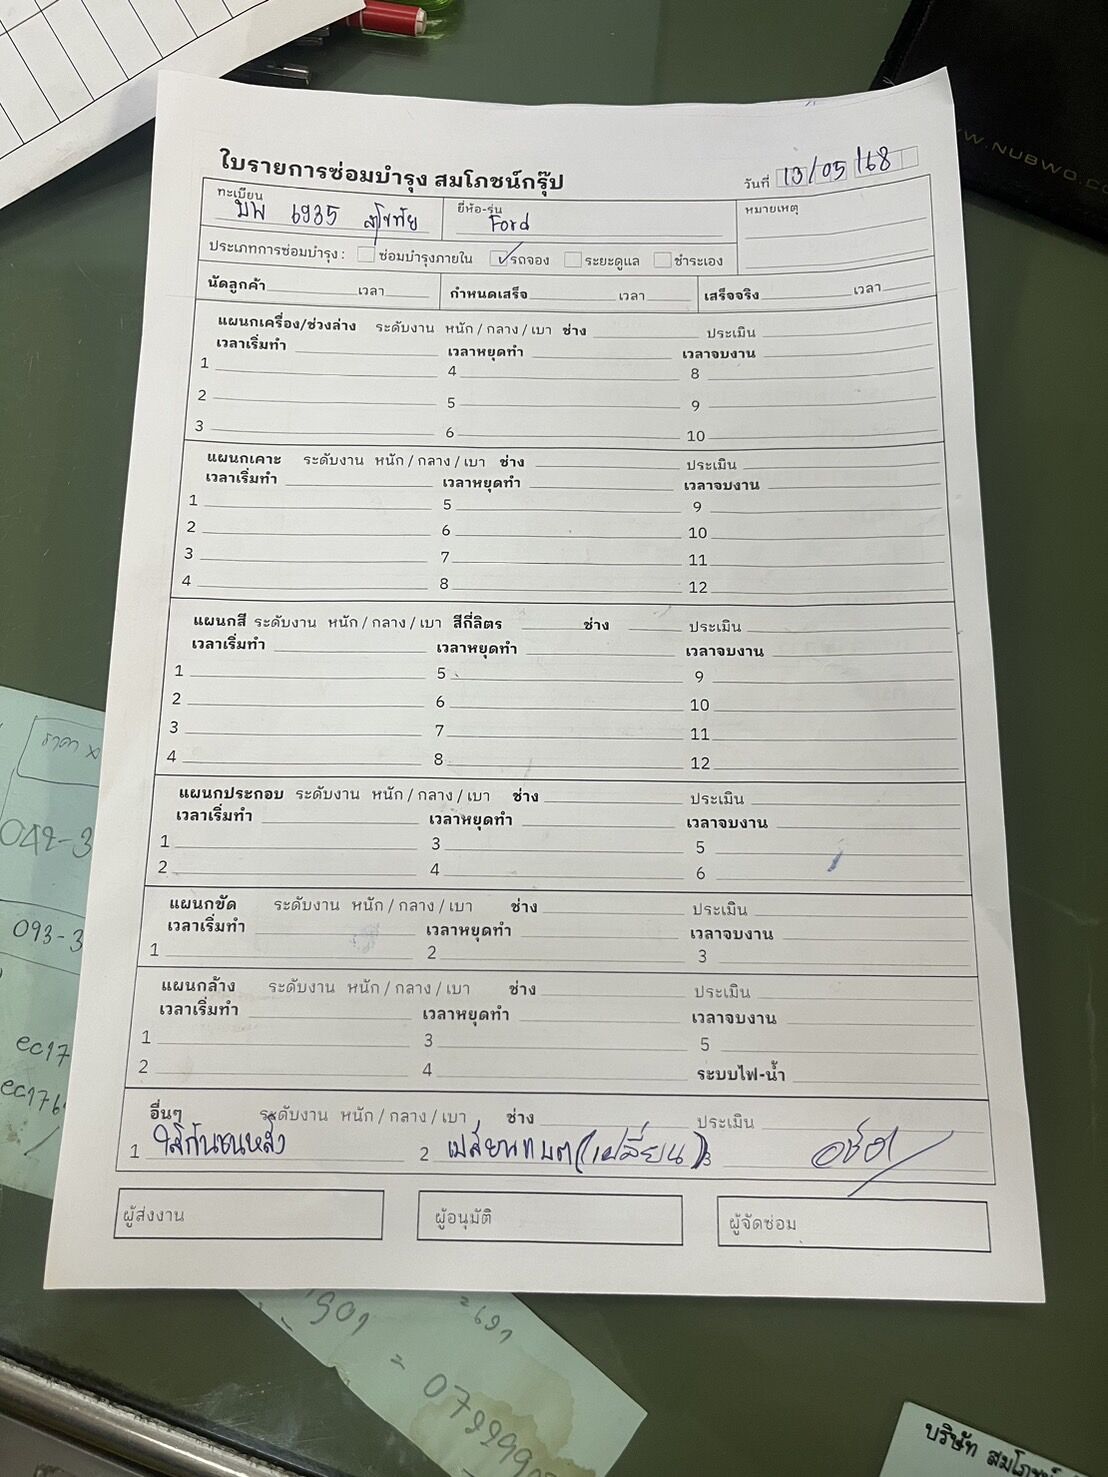 ใบรายการซ่อมบำรุง สมโภชน์กรุ๊ป
วันที่ 13/05/68
ทะเบียน
บพ 6935 สุโขทัย
ยี่ห้อ-รุ่น
Ford
หมายเหตุ
ประเภทการซ่อมบำรุง : ซ่อมบำรุงภายใน ✓ รถจอง ระยะดูแล ชำระเอง
นัดลูกค้า เวลา กำหนดเสร็จ เวลา เสร็จจริง เวลา
แผนกเครื่อง/ช่วงล่าง ระดับงาน หนัก / กลาง / เบา ช่าง ประเมิน
เวลาเริ่มทำ เวลาหยุดทำ เวลาจบงาน
1 4 8
2 5 9
3 6 10
แผนกเคาะ ระดับงาน หนัก / กลาง / เบา ช่าง ประเมิน
เวลาเริ่มทำ เวลาหยุดทำ เวลาจบงาน
1 5 9
2 6 10
3 7 11
4 8 12
แผนกสี ระดับงาน หนัก / กลาง / เบา สีกี่ลิตร ช่าง ประเมิน
เวลาเริ่มทำ เวลาหยุดทำ เวลาจบงาน
1 5 9
2 6 10
3 7 11
4 8 12
แผนกประกอบ ระดับงาน หนัก / กลาง / เบา ช่าง ประเมิน
เวลาเริ่มทำ เวลาหยุดทำ เวลาจบงาน
1 3 5
2 4 6
แผนกขัด ระดับงาน หนัก / กลาง / เบา ช่าง ประเมิน
เวลาเริ่มทำ เวลาหยุดทำ เวลาจบงาน
1 2 3
แผนกล้าง ระดับงาน หนัก / กลาง / เบา ช่าง ประเมิน
เวลาเริ่มทำ เวลาหยุดทำ เวลาจบงาน
1 3 5
2 4 ระบบไฟ-น้ำ
อื่นๆ ระดับงาน หนัก / กลาง / เบา ช่าง ประเมิน
1 ใส่กันชนหลัง 2 เปลี่ยนแบต (เปลี่ยน) 3
ผู้ส่งงาน ผู้อนุมัติ ผู้จัดซ่อม
ราคา
042-3
093-3
ec17
ec176
บริษัท สมโภชน์